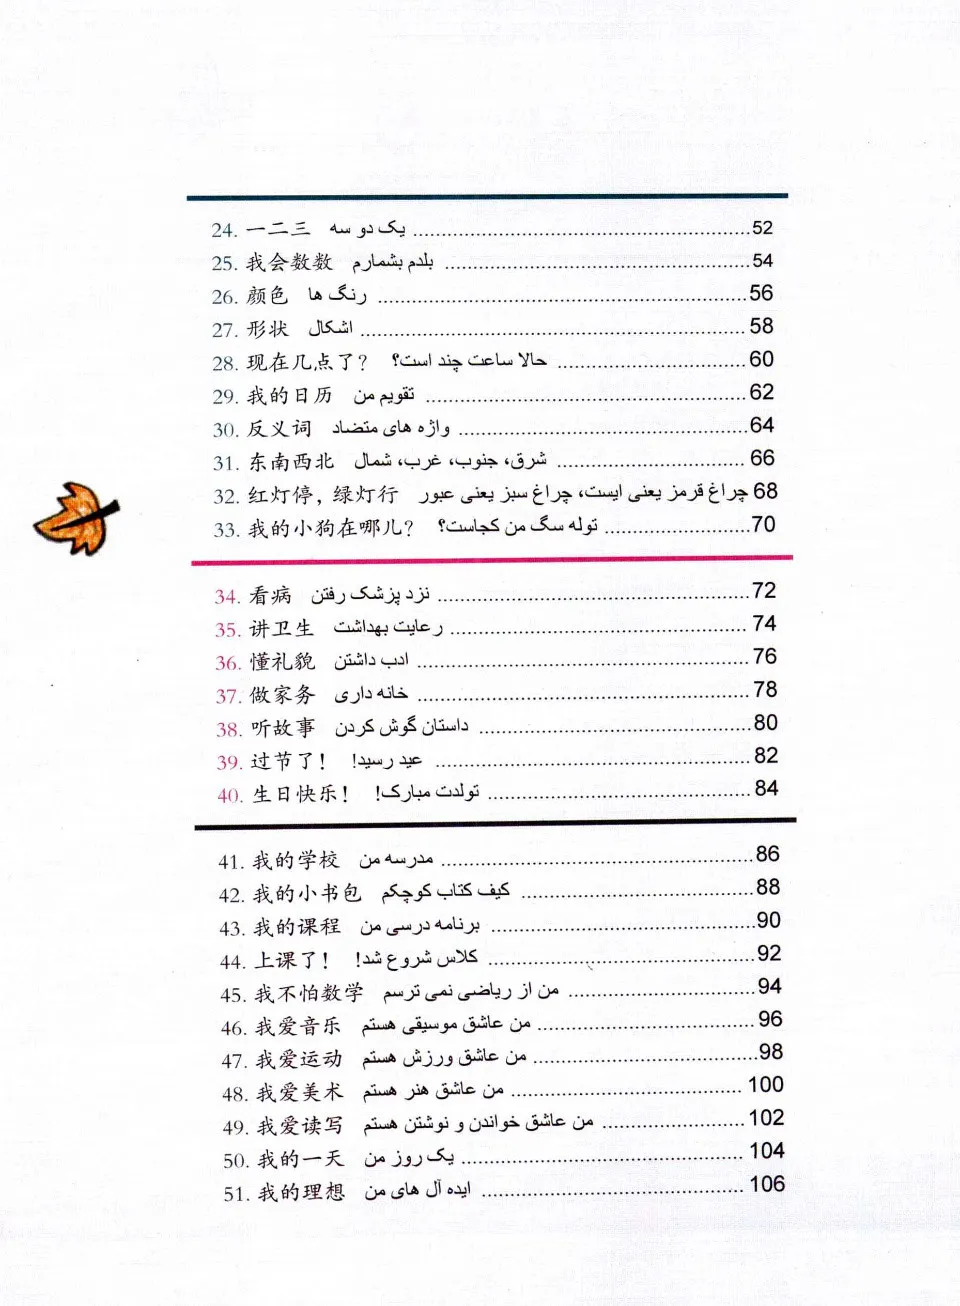 24. 一二三 یک دو سه ..........52
25. 我会数数 بلدم بشمارم ..........54
26. 颜色 رنگ ها ..........56
27. 形状 اشکال ..........58
28. 现在几点了？ حالا ساعت چند است؟ ..........60
29. 我的日历 تقویم من ..........62
30. 反义词 واژه های متضاد ..........64
31. 东南西北 شرق، جنوب، غرب، شمال ..........66
32. 红灯停，绿灯行 چراغ قرمز یعنی ایست، چراغ سبز یعنی عبور 68
33. 我的小狗在哪儿？ توله سگ من کجاست؟ ..........70
34. 看病 نزد پزشک رفتن ..........72
35. 讲卫生 رعایت بهداشت ..........74
36. 懂礼貌 ادب داشتن ..........76
37. 做家务 خانه داری ..........78
38. 听故事 داستان گوش کردن ..........80
39. 过节了！ عید رسید! ..........82
40. 生日快乐！ تولدت مبارک! ..........84
41. 我的学校 مدرسه من ..........86
42. 我的小书包 کیف کتاب کوچکم ..........88
43. 我的课程 برنامه درسی من ..........90
44. 上课了！ کلاس شروع شد! ..........92
45. 我不怕数学 من از ریاضی نمی ترسم ..........94
46. 我爱音乐 من عاشق موسیقی هستم ..........96
47. 我爱运动 من عاشق ورزش هستم ..........98
48. 我爱美术 من عاشق هنر هستم ..........100
49. 我爱读写 من عاشق خواندن و نوشتن هستم ..........102
50. 我的一天 یک روز من ..........104
51. 我的理想 ایده آل های من ..........106